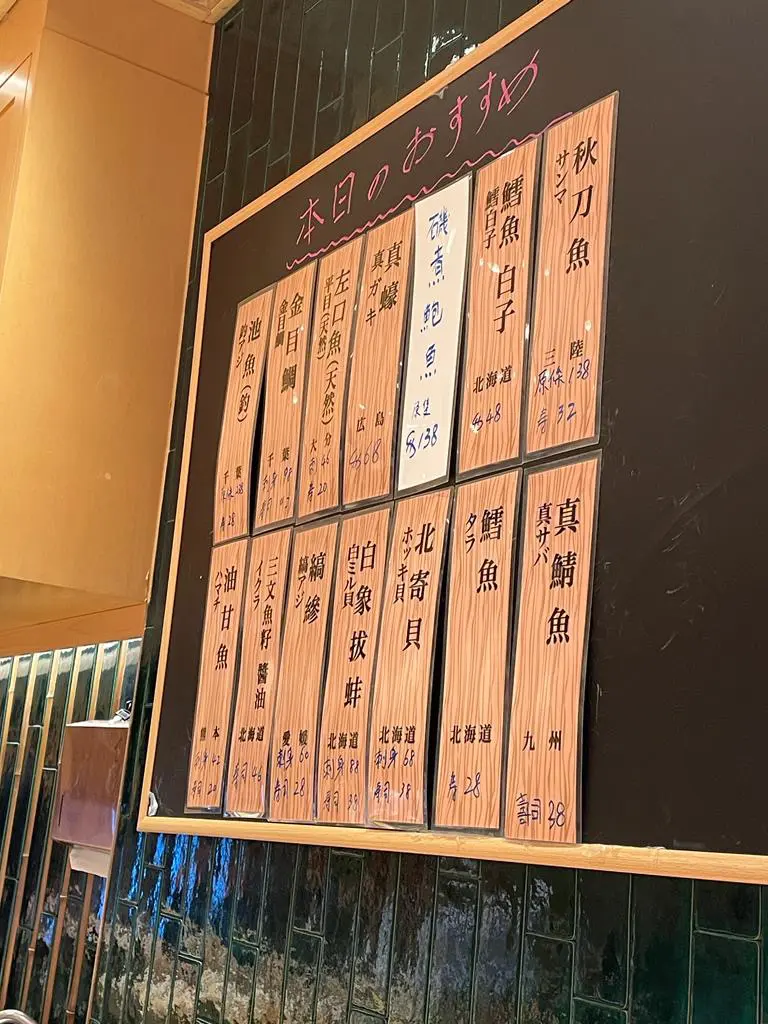 本日のおすすめ
秋刀魚
サンマ
三陸
原條 138
寿 32
鱈魚 白子
鱈白子
北海道
磯煮鮑魚
138
真蠔
真ガキ
広島
左口魚(天然)
平目(天然)
大分
刺 46
寿 20
金目鯛
金目鯛
千葉
池魚(釣)
千葉
真鯖魚
真サバ
九州
寿司 38
鱈魚
タラ
北海道
寿 28
北寄貝
ホッキ貝
北海道
刺身 68
寿司 38
白象拔蚌
白ミル貝
北海道
刺身 88
寿司 38
縞鰺
縞アジ
愛媛
刺身 60
寿司 28
三文魚籽 醬油
イクラ
北海道
寿司 46
油甘魚
ハマチ
熊本
刺身 42
寿司 20